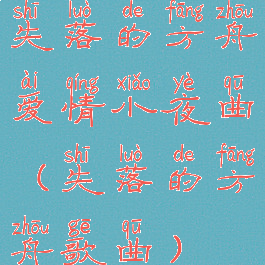 shī luò de fāng zhōu
失落的方舟
ài qíng xiǎo yè qū
爱情小夜曲
shī luò de fāng
（失落的方
zhōu gē qū
舟歌曲）